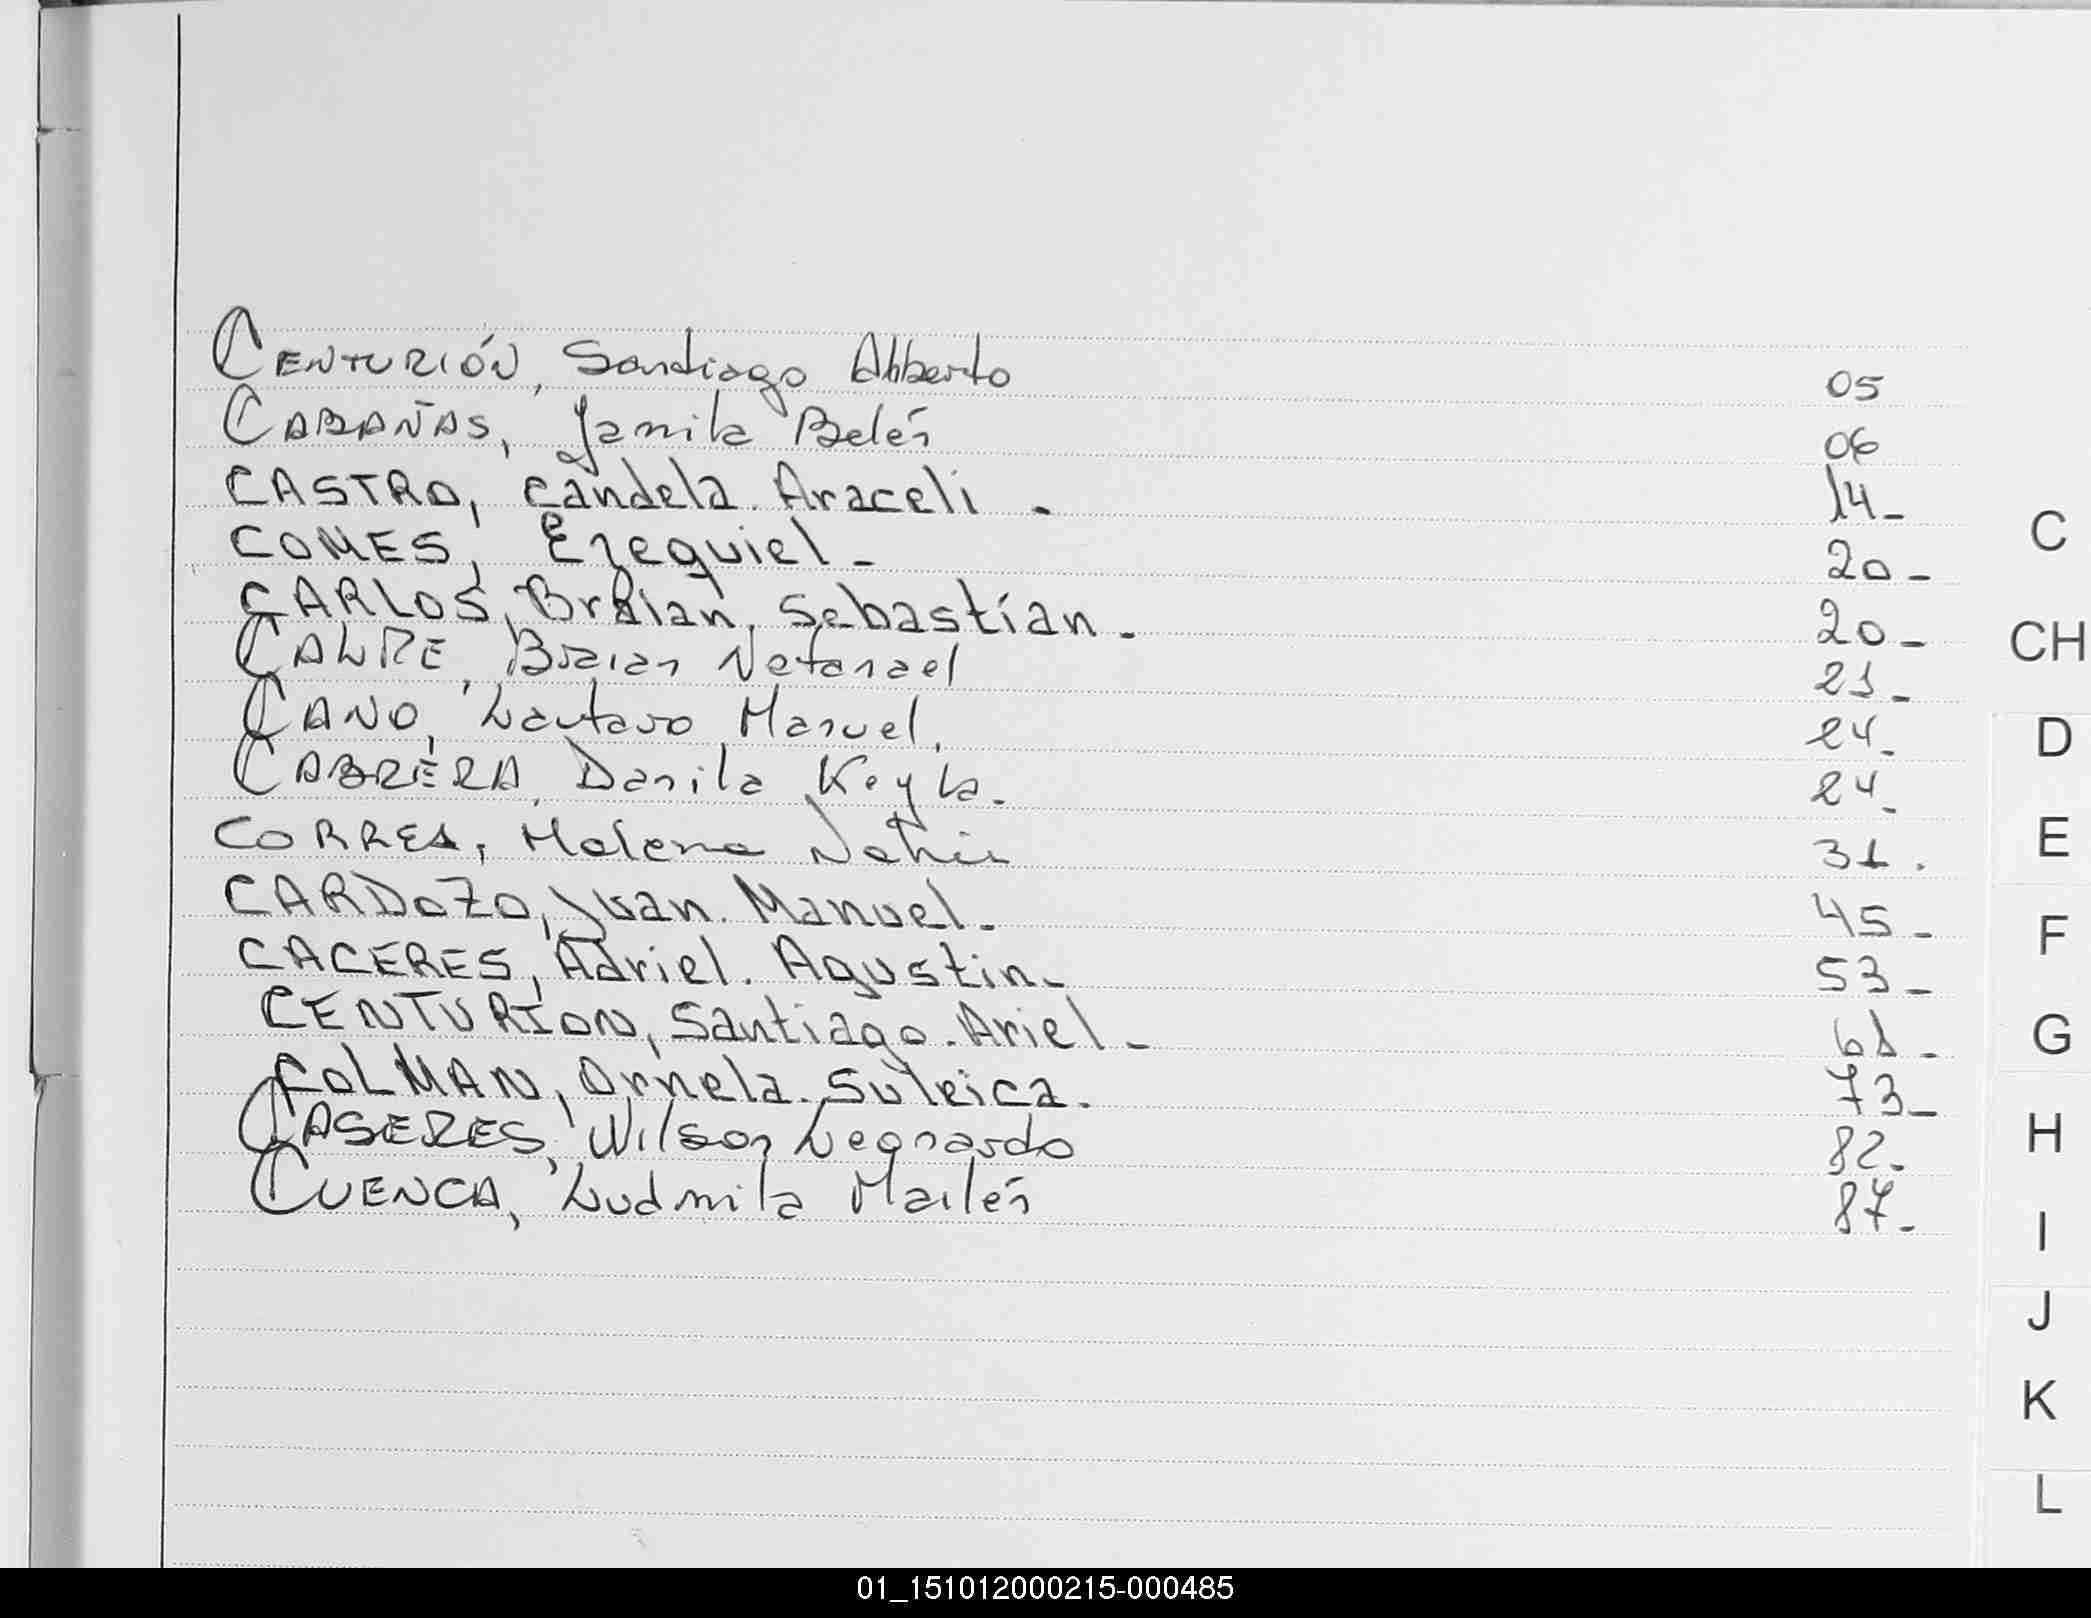 CENTURIÓN, Santiago Alberto 05
CABAÑAS, Yamila Belén 06
CASTRO, Candela. Araceli - 14-
COMES, Ezequiel - 20-
CARLOS, Braian, Sebastían - 20-
Braian Natanael 21-
CANO, Lautaro Manuel. 24-
CABRERA, Danila Keyla. 24-
CORREA, Malena Nahir 31.
CARDOZO, Juan. Manuel - 45-
CACERES, Adriel. Agustin - 53-
CENTURION, Santiago. Ariel - 61-
COLMAN, Ornela. Suleica. 73-
CASERES, Wilson Leonardo 82.
CUENCA, Ludmila Mailén 87-
C
CH
D
E
F
G
H
I
J
K
L
01_151012000215-000485